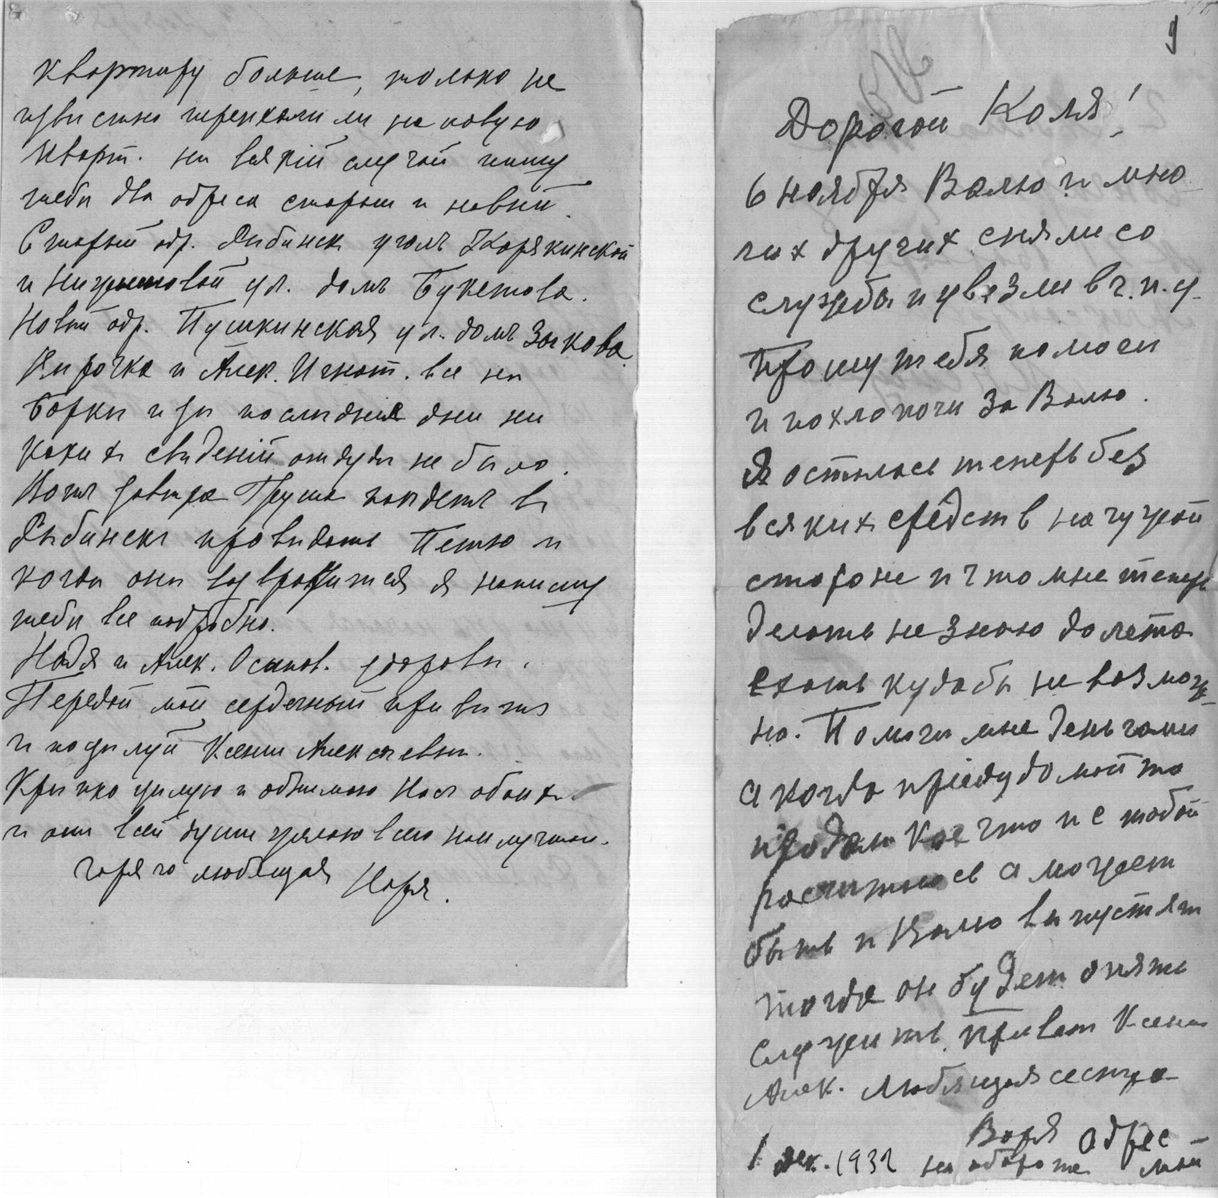 квартиру больше, только не
известно переехали ли на новую
кварт. на всякий случай пишу
тебе два адреса старый и новый.
Старый адр. Рыбинск уголъ Карякинской
и ул. домъ Букетова.
Новый адр. Пушкинская ул. домъ Зыкова
Кирочка и Алек. Игнат. все на
Борки и за последние дни ни
каких сведений оттуда не было.
Вотъ завтра Груша поедетъ въ
Рыбинскъ проведать Петю и
когда она возвратится я напишу
тебе все подробно.
Надя и Алек. Осипов. здоровы.
Передай мой сердечный приветъ
и поцелуй Ксении Алексеевны.
Крепко целую и обнимаю Васъ обоихъ
и отъ всей души желаю всего наилучшаго.
горячо любящая Варя.
9
Дорогой Коля!
6 ноября Валю и мно
гих других сняли со
службы и увезли в г.п.у.
Прошу тебя помоги
и похлопочи за Валю.
Я осталась теперь без
всяких средств на чужой
стороне и что мне теперь
делать не знаю до лета
ехать куда бы невозмож
но. Помоги мне деньгами
а когда приеду домой то
продам кое что и с тобой
расчитаюсь а может
быть и Валю выпустят
тогда он будет опять
служить. Привет Ксении
Алек. Любящая сестра
Варя адрес
1 дек. 1932 на обороте мой